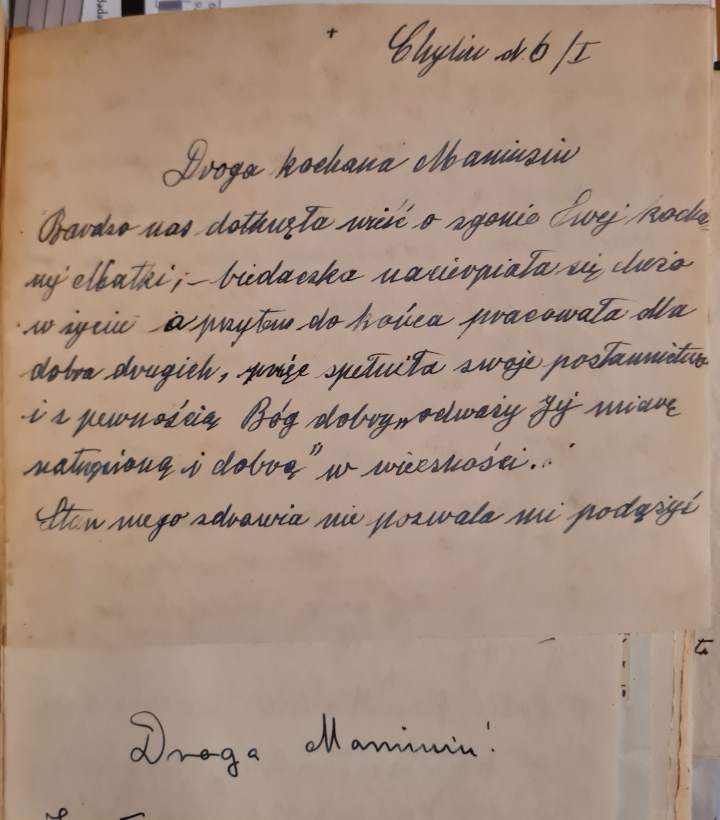 +
Chylin d. 6/I
Droga kochana Maniusiu
Bardzo nas dotknęła wieść o zgonie Twej kocha=
nej Matki; – biedaczka nacierpiała się dużo
w życiu a przytem do końca pracowała dla
dobra drugich, więc spełniła swoje posłannictwo
i z pewnością Bóg dobry „odważy Jej miarę
natłoczoną i dobrą" w wieczności.
Stan mego zdrowia nie pozwala mi podążyć
Droga Maniusiu!